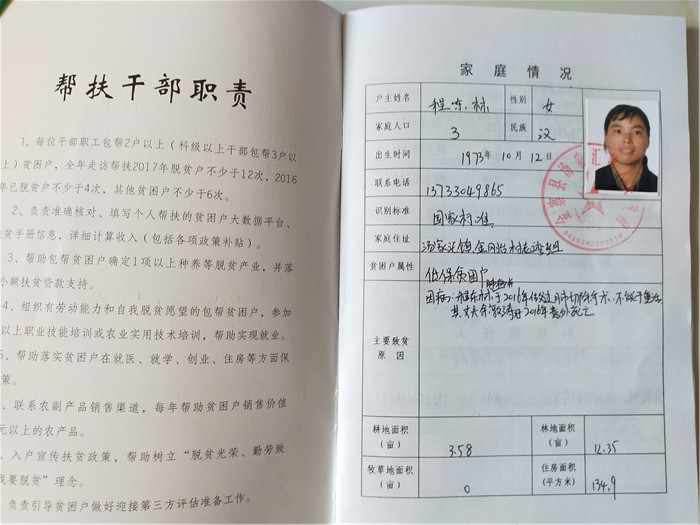 帮扶干部职责
1、每位干部职工包帮2户以上（科级以上干部包帮3户以
上）贫困户，全年走访帮扶2017年脱贫户不少于12次，2016
年已脱贫户不少于4次，其他贫困户不少于6次。
2、负责准确核对、填写个人帮扶的贫困户大数据平台、
扶贫手册信息，详细计算收入（包括各项政策补贴）。
3、帮助包帮贫困户确定1项以上种养等脱贫产业，并落
小额扶贫贷款支持。
4、组织有劳动能力和自我脱贫愿望的包帮贫困户，参加
以上职业技能培训或农业实用技术培训，帮助实现就业。
5、帮助落实贫困户在就医、就学、创业、住房等方面保
策。
、联系农副产品销售渠道，每年帮助贫困户销售价值
元以上的农产品。
、入户宣传扶贫政策，帮助树立“脱贫光荣、勤劳致
我要脱贫”理念。
负责引导贫困户做好迎接第三方评估准备工作。
家庭情况
户主姓名 程东林 性别 女
家庭人口 3 民族 汉
出生时间 1973年10月12日
联系电话 13733049865
识别标准 国家标准
家庭住址 汤家汇镇
贫困户属性 低保贫困户
主要致贫
原因
因病:程东林于2016年
2016年意外死亡
耕地面积
（亩） 3.58 林地面积
（亩） 12.35
牧草地面积
（亩） 0 住房面积
（平方米） 134.9